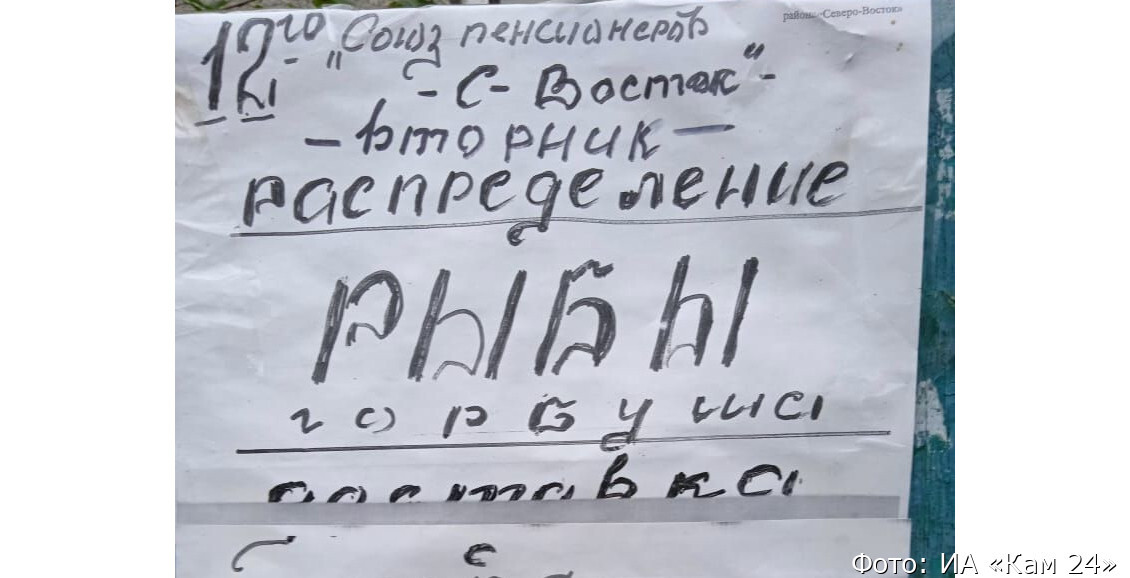 района «Северо-Восток»
12го - "Союз пенсионеров
- С - Восток" -
- вторник -
распределение
РЫБЫ
горбуша
доставка
Фото: ИА «Кам 24»